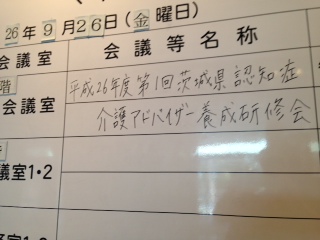 26年9月26日(金曜日)
会議室 会議等名称
階
会議室 平成26年度第1回茨城県認知症
介護アドバイザー養成研修会
議室1・2